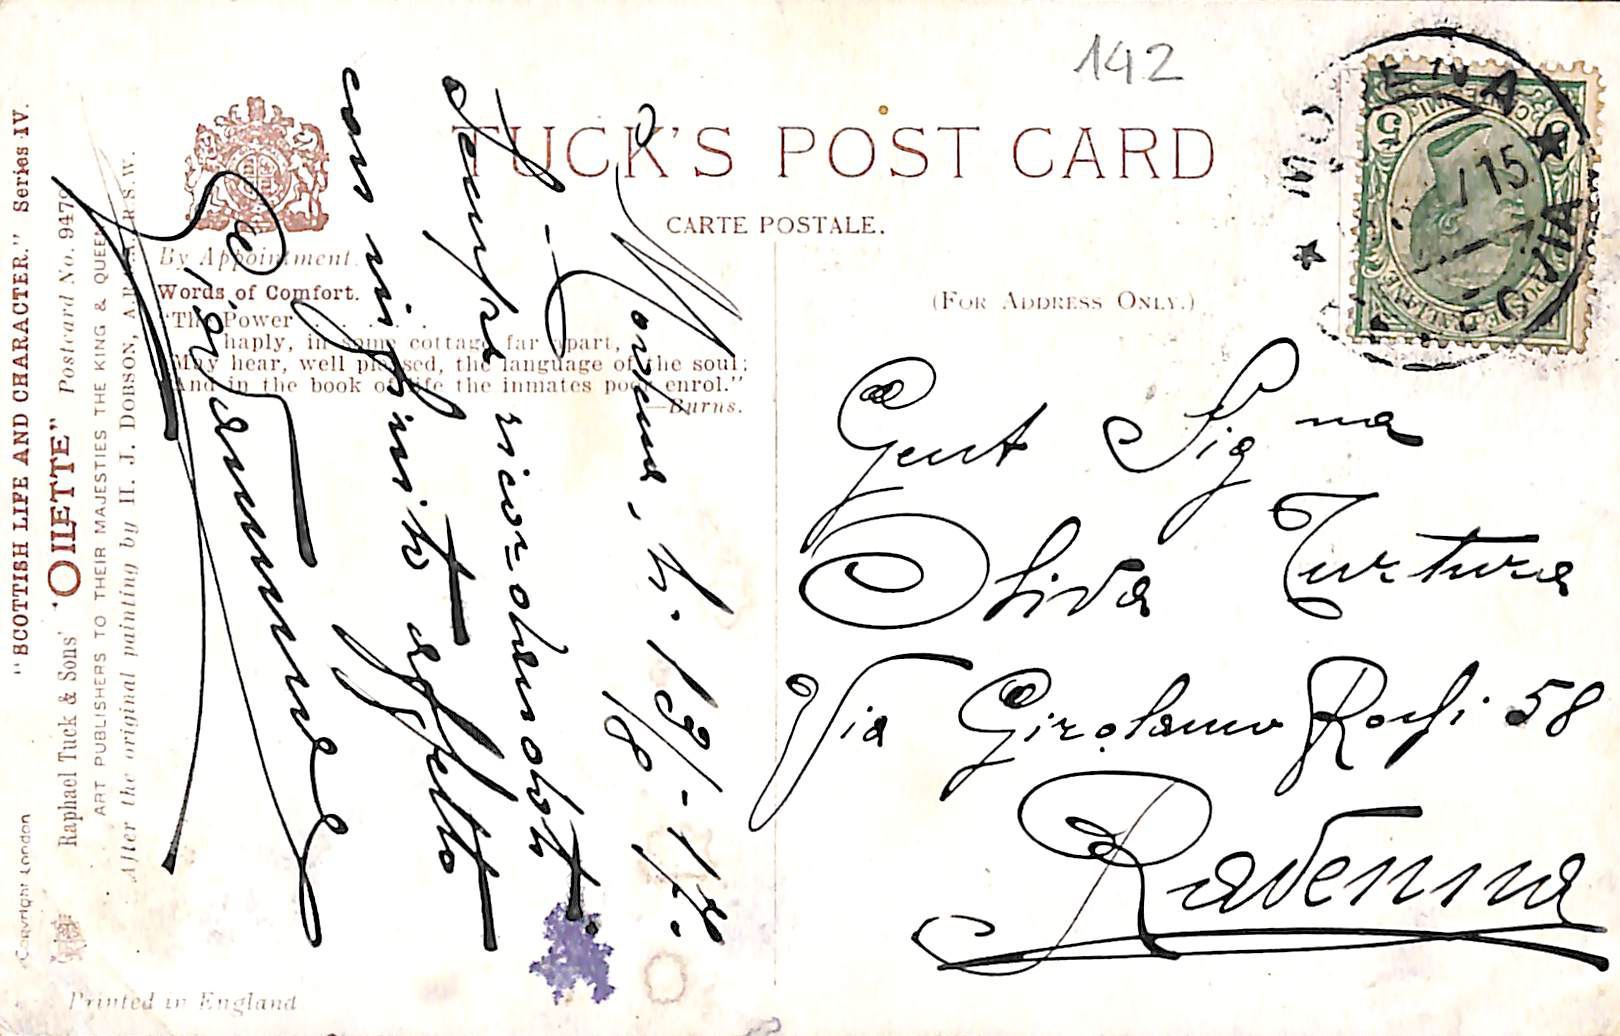 142
TUCK'S POST CARD
CARTE POSTALE.
(FOR ADDRESS ONLY.)
By Appointment.
Words of Comfort.
"The Power . . . . . .
haply, in some cottage far apart,
May hear, well pleased, the language of the soul;
And in the book of life the inmates poor enrol."
—Burns.
"SCOTTISH LIFE AND CHARACTER." Series IV.
Raphael Tuck & Sons' "OILETTE" Postcard No. 9479
ART PUBLISHERS TO THEIR MAJESTIES THE KING & QUEEN
After the original painting by H. J. DOBSON, A.R.C.A., R.S.W.
Copyright London
Printed in England
Modena, li 13/8-17.
Sempre ricordandoti
con infinito affetto
Gent Signa
Oliva Turtura
Via Girolamo Rossi 58
Ravenna
5
15